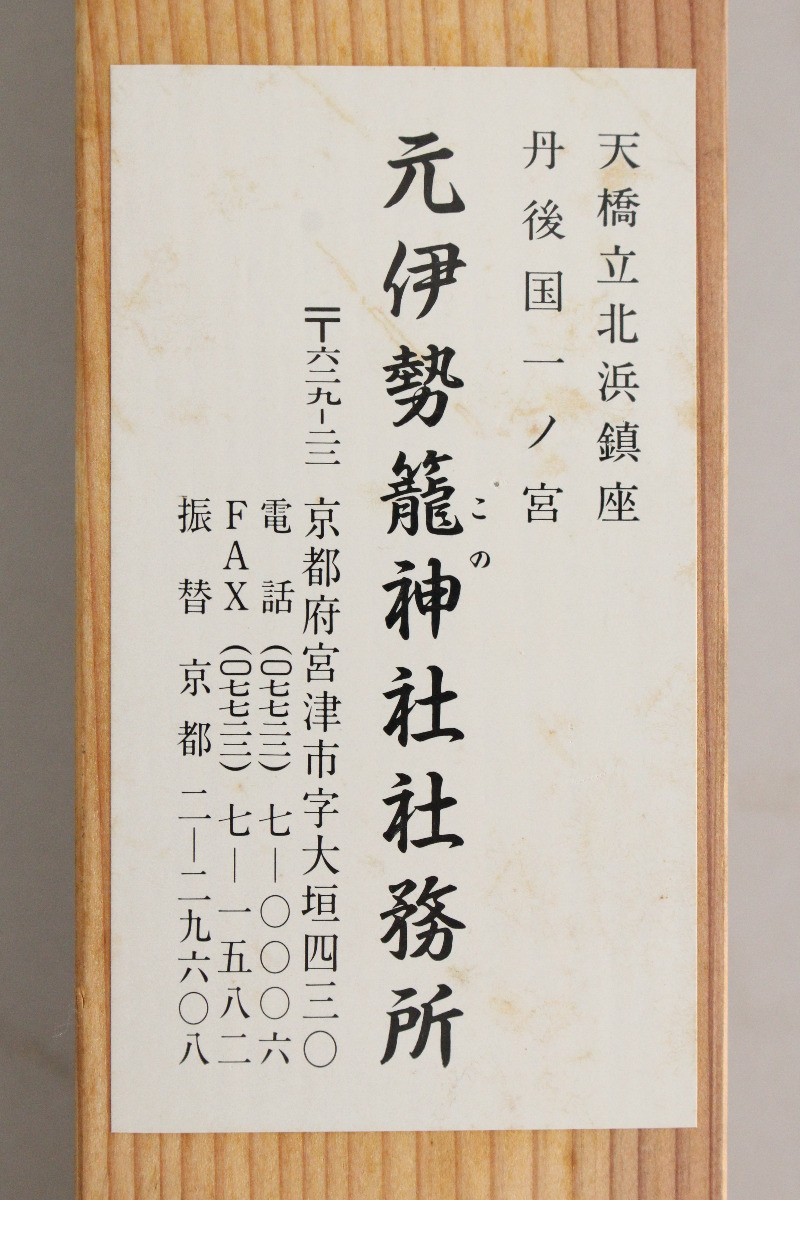 天橋立北浜鎮座
丹後国一ノ宮
元伊勢籠神社社務所
この
〒六二九-二二 京都府宮津市字大垣四三〇
電話 (〇七七二二) 七―〇〇〇六
FAX (〇七七二二) 七―一五八二
振替 京都 二―二九六〇八